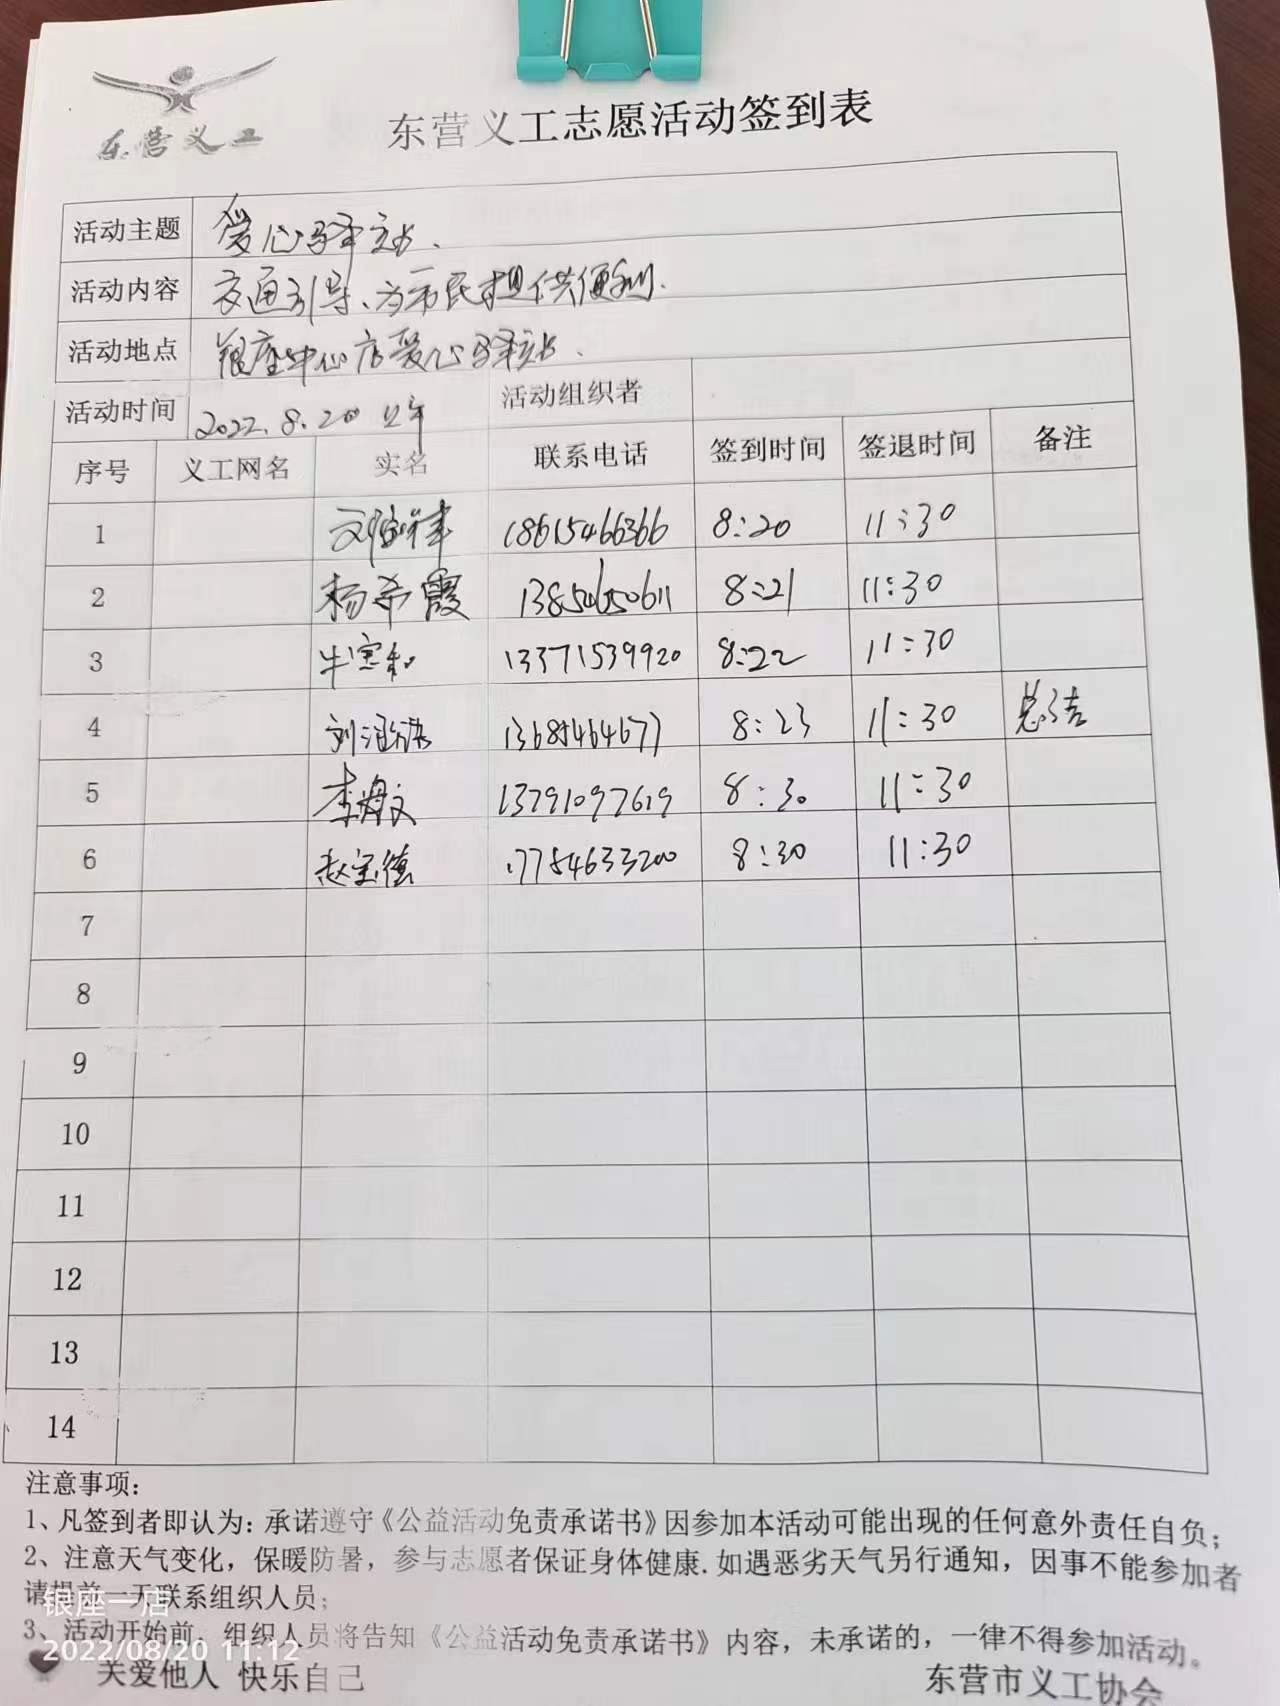 东营义工
东营义工志愿活动签到表
活动主题 爱心驿站.
活动内容 交通引导、为市民提供便利.
活动地点 银座中心店爱心驿站.
活动时间 2022.8.20 上午 活动组织者
序号 义工网名 实名 联系电话 签到时间 签退时间 备注
1 18615466366 8:20 11:30
2 杨希霞 13854650611 8:21 11:30
3 牛宝和 13371539920 8:22 11:30
4 刘 13685464677 8:23 11:30 总结
5 李 文 13791097619 8:30 11:30
6 赵宝德 17754633200 8:30 11:30
7
8
9
10
11
12
13
14
注意事项:
1、凡签到者即认为: 承诺遵守《公益活动免责承诺书》因参加本活动可能出现的任何意外责任自负;
2、注意天气变化, 保暖防暑, 参与志愿者保证身体健康.如遇恶劣天气另行通知, 因事不能参加者
请提前一天联系组织人员;
银座一店
3、活动开始前, 组织人员将告知《公益活动免责承诺书》内容, 未承诺的, 一律不得参加活动。
2022/08/20 11:12
关爱他人 快乐自己 东营市义工协会